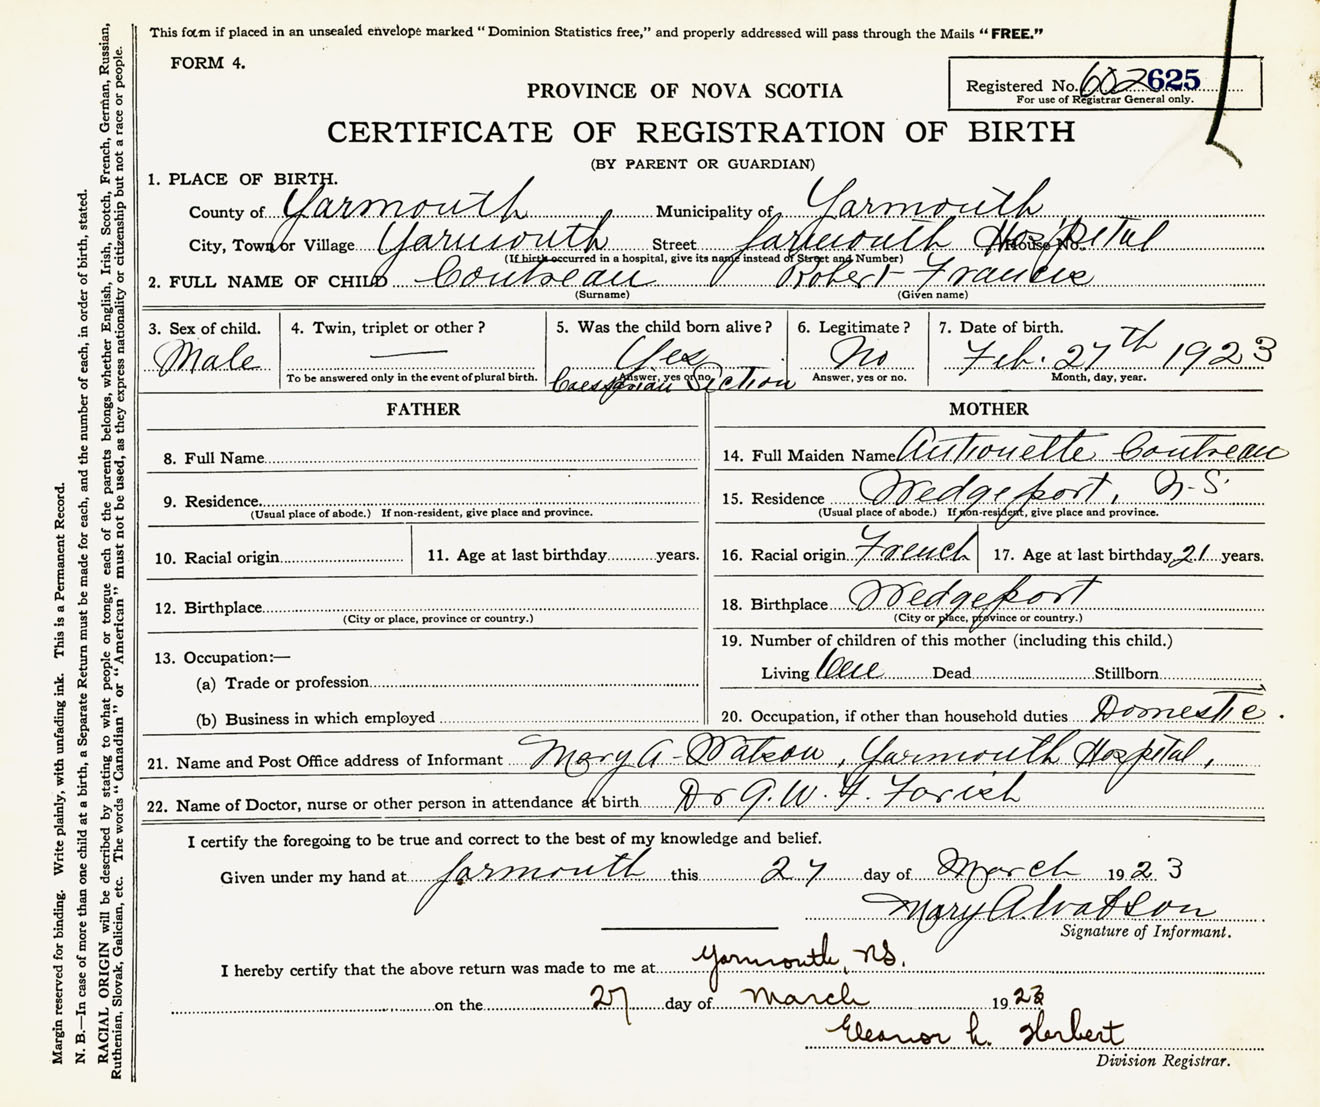 This form if placed in an unsealed envelope marked "Dominion Statistics free," and properly addressed will pass through the Mails "FREE."
FORM 4.
Registered No. 602 625
For use of Registrar General only.
PROVINCE OF NOVA SCOTIA
CERTIFICATE OF REGISTRATION OF BIRTH
(BY PARENT OR GUARDIAN)
1. PLACE OF BIRTH.
County of Yarmouth Municipality of Yarmouth
City, Town or Village Yarmouth Street Yarmouth Hospital House No.
(If birth occurred in a hospital, give its name instead of Street and Number)
2. FULL NAME OF CHILD Coutreau Robert Francis
(Surname) (Given name)
3. Sex of child. 4. Twin, triplet or other? 5. Was the child born alive? 6. Legitimate? 7. Date of birth.
Male — Yes No Feb. 27th 1923
To be answered only in the event of plural birth. Answer, yes or no. Answer, yes or no. Month, day, year.
Caesarian Section
FATHER MOTHER
8. Full Name 14. Full Maiden Name Antionette Coutreau
9. Residence 15. Residence Wedgeport, N.S.
(Usual place of abode.) If non-resident, give place and province. (Usual place of abode.) If non-resident, give place and province.
10. Racial origin 11. Age at last birthday years. 16. Racial origin French 17. Age at last birthday 21 years.
12. Birthplace 18. Birthplace Wedgeport
(City or place, province or country.) (City or place, province or country.)
13. Occupation:— 19. Number of children of this mother (including this child.)
(a) Trade or profession Living One Dead Stillborn
(b) Business in which employed 20. Occupation, if other than household duties Domestic.
21. Name and Post Office address of Informant Mary A. Watson, Yarmouth Hospital,
22. Name of Doctor, nurse or other person in attendance at birth Dr G. W. F. Farish
I certify the foregoing to be true and correct to the best of my knowledge and belief.
Given under my hand at Yarmouth this 27 day of March 1923
Mary A. Watson
Signature of Informant.
I hereby certify that the above return was made to me at Yarmouth, N.S.
on the 27 day of March 1923
Eleanor L. Herbert
Division Registrar.
Margin reserved for binding. Write plainly, with unfading ink. This is a Permanent Record.
N. B.—In case of more than one child at a birth, a Separate Return must be made for each, and the number of each, in order of birth, stated.
RACIAL ORIGIN will be described by stating to what people or tongue each of the parents belongs, whether English, Irish, Scotch, French, German, Russian,
Ruthenian, Slovak, Galician, etc. The words "Canadian" or "American" must not be used, as they express nationality or citizenship but not a race or people.